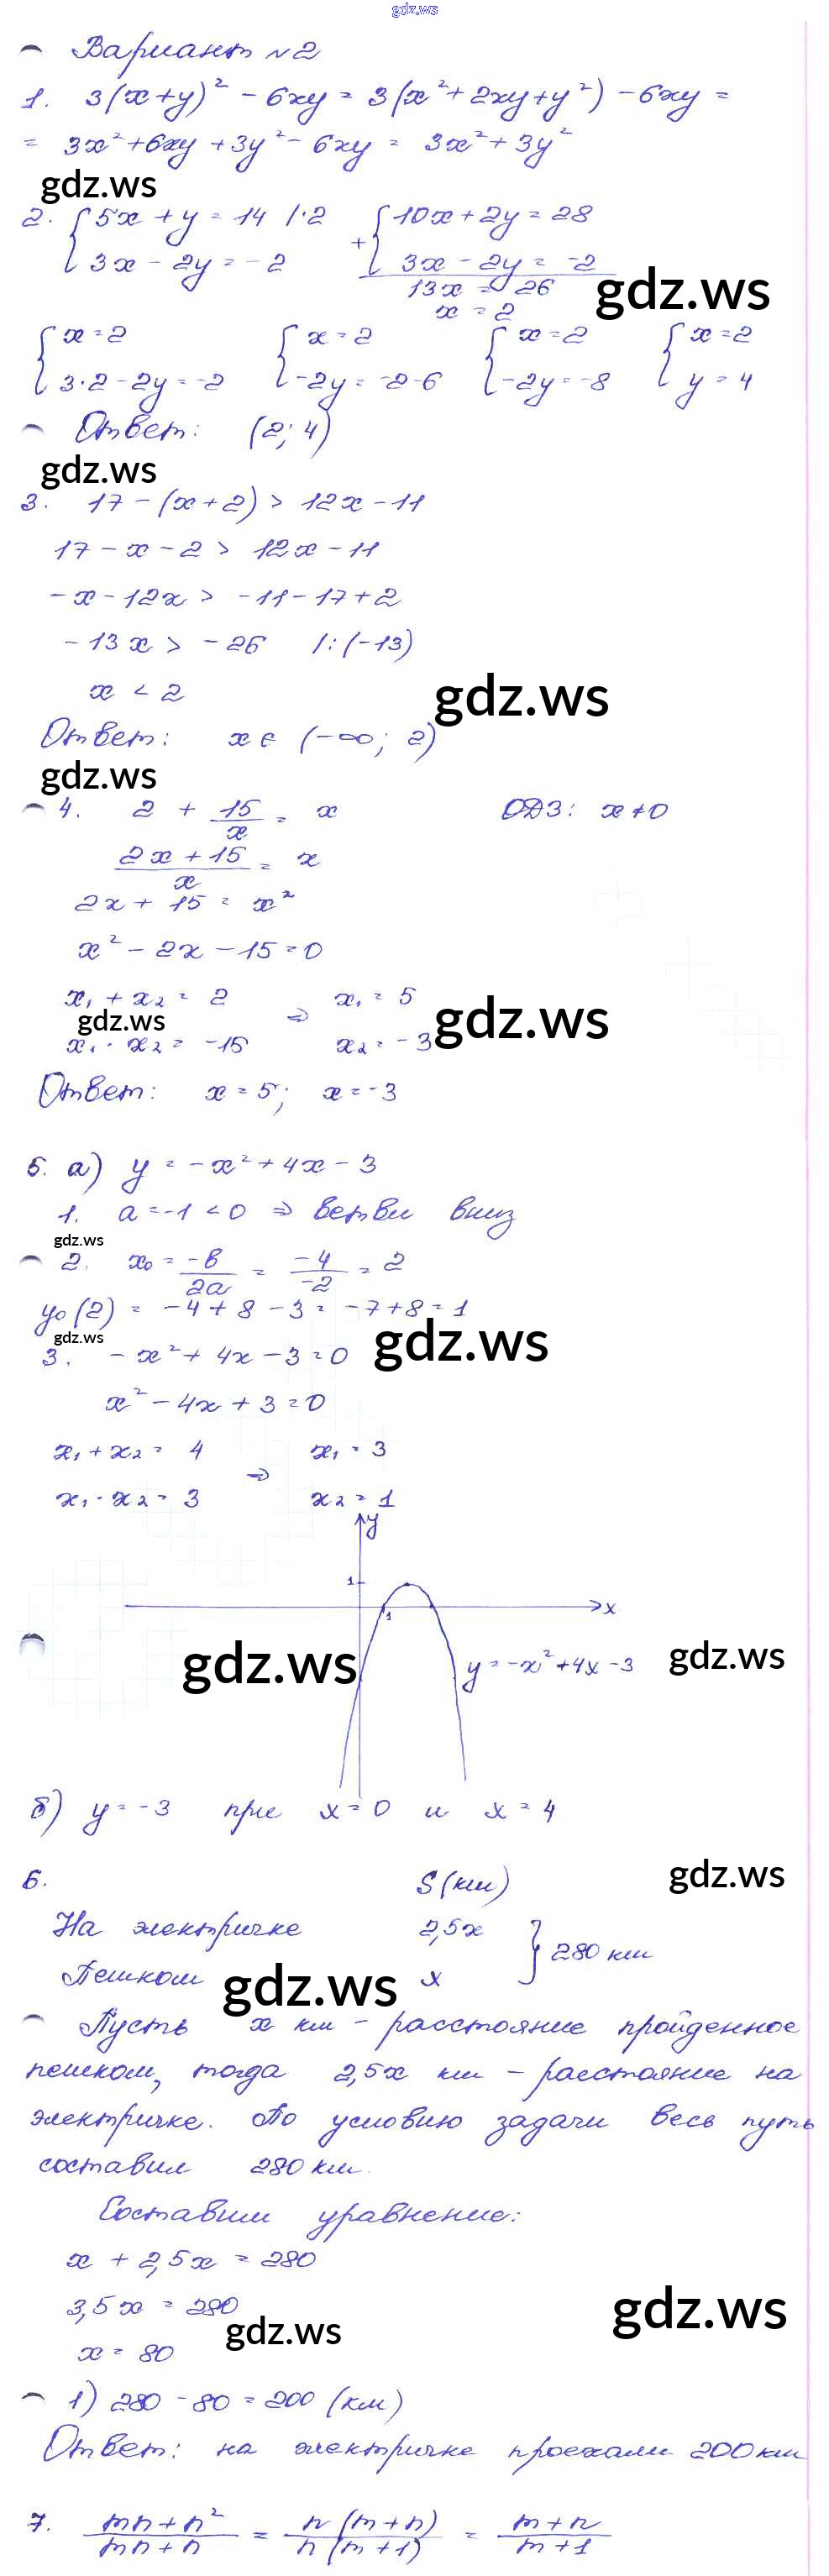 gdz.ws
Вариант №2
1. 3(x+y)² - 6xy = 3(x²+2xy+y²) - 6xy =
= 3x²+6xy+3y²-6xy = 3x²+3y²
gdz.ws
2. { 5x + y = 14 |·2 + { 10x+2y=28
3x - 2y = -2 3x - 2y = -2
13x = 26
gdz.ws
x = 2
{ x=2 { x=2 { x=2 { x=2
3·2-2y=-2 -2y=-2-6 -2y=-8 y=4
Ответ: (2; 4)
gdz.ws
3. 17-(x+2) > 12x-11
17-x-2 > 12x-11
-x-12x > -11-17+2
-13x > -26 |:(-13)
x < 2
gdz.ws
Ответ: x ∈ (-∞; 2)
gdz.ws
4. 2 + 15/x = x ОДЗ: x≠0
(2x+15)/x = x
2x+15 = x²
x²-2x-15=0
x₁+x₂ = 2 ⇒ x₁ = 5
gdz.ws gdz.ws
x₁·x₂ = -15 x₂ = -3
Ответ: x=5; x=-3
5. а) y = -x²+4x-3
1. a=-1<0 ⇒ ветви вниз
gdz.ws
2. x₀ = -b/2a = -4/-2 = 2
y₀(2) = -4+8-3 = -7+8=1
gdz.ws gdz.ws
3. -x²+4x-3=0
x²-4x+3=0
x₁+x₂ = 4 ⇒ x₁ = 3
x₁·x₂ = 3 x₂ = 1
y
1
x
1
gdz.ws y=-x²+4x-3 gdz.ws
б) y=-3 при x=0 и x=4
gdz.ws
6. S(км)
На электричке 2,5x } 280 км
Пешком x
gdz.ws
Пусть x км - расстояние пройденное
пешком, тогда 2,5x км - расстояние на
электричке. По условию задачи весь путь
составил 280 км.
Составим уравнение:
x + 2,5x = 280
3,5x = 280
gdz.ws
gdz.ws
x = 80
1) 280-80=200 (км)
Ответ: на электричке проехали 200 км
7. (mn+n²)/(mn+n) = n(m+n)/n(m+1) = (m+n)/(m+1)